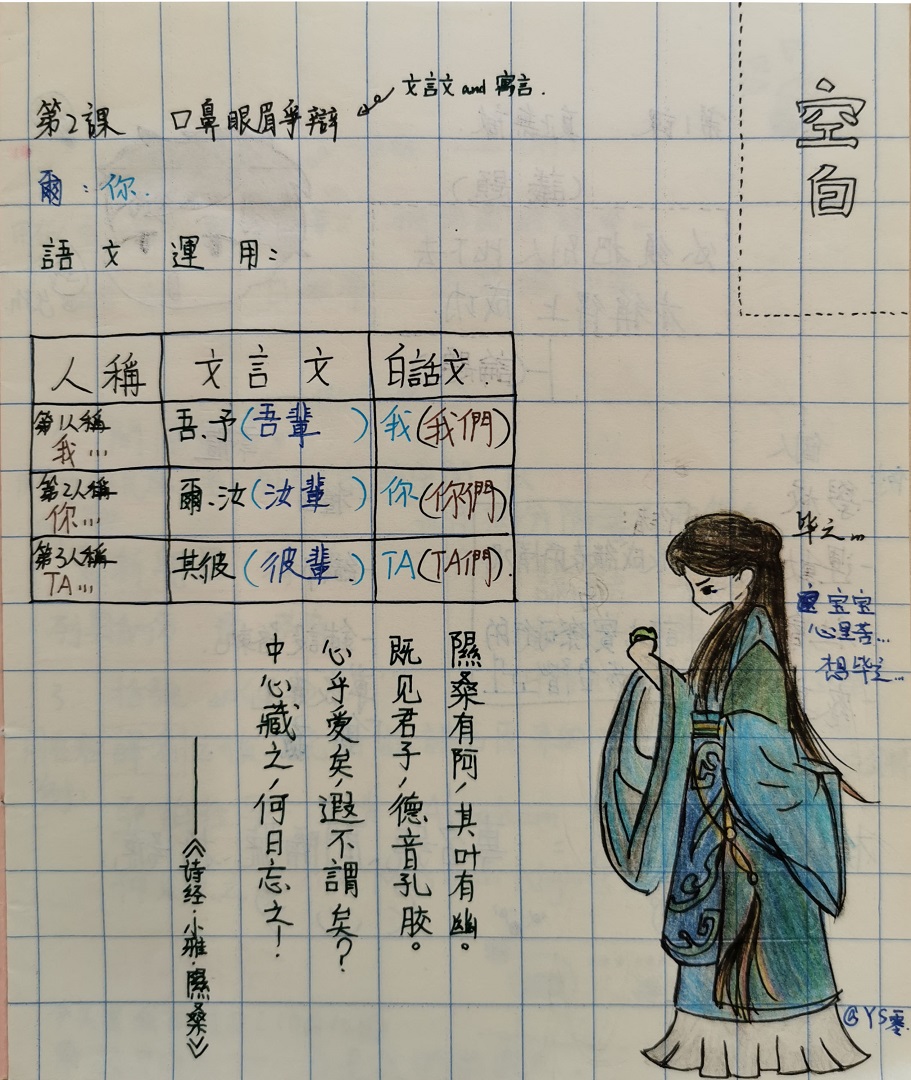 文言文 and 寓言.
第2課 口鼻眼眉爭辯
空白
爾:你.
語文運用:
人稱 文言文 白話文.
第1人稱 我… 吾、予(吾輩) 我(我們)
第2人稱 你… 爾、汝(汝輩) 你(你們)
第3人稱 TA… 其彼(彼輩.) TA(TA們).
毕之…
宝宝
心里苦…
想毕之…
隰桑有阿,其叶有幽。
既见君子,德音孔胶。
心乎爱矣,遐不謂矣?
中心藏之,何日忘之!
——《诗经·小雅·隰桑》
@YS零.